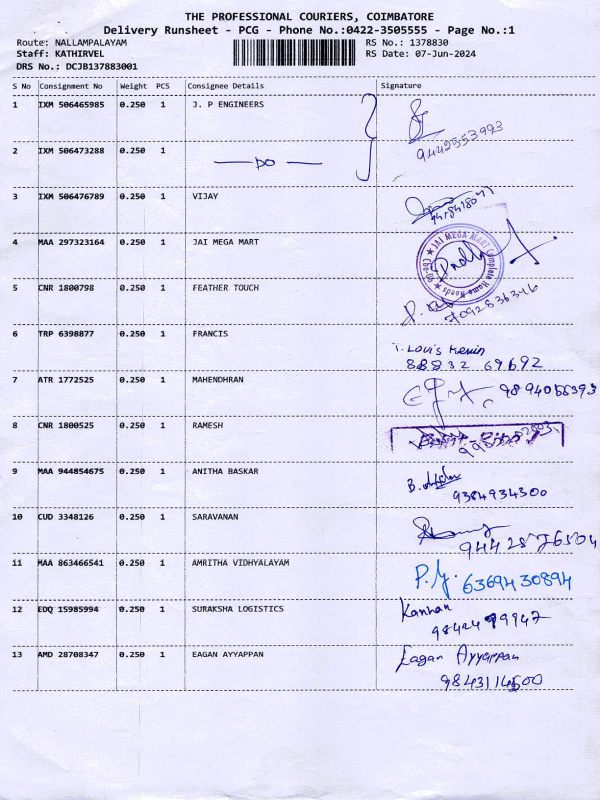 THE PROFESSIONAL COURIERS, COIMBATORE
Delivery Runsheet - PCG - Phone No.:0422-3505555 - Page No.:1
Route: NALLAMPALAYAM RS No.: 1378830
Staff: KATHIRVEL RS Date: 07-Jun-2024
DRS No.: DCJB137883001
S No Consignment No Weight PCS Consignee Details Signature
1 IXM 506465985 0.250 1 J. P ENGINEERS
9442553993
2 IXM 506473288 0.250 1 DO
3 IXM 506476789 0.250 1 VIJAY
4 MAA 297323164 0.250 1 JAI MEGA MART
JAI MEGA MART Complete Home Needs
5 CNR 1800798 0.250 1 FEATHER TOUCH
7092836346
6 TRP 6398877 0.250 1 FRANCIS
T. Louis
88832 69692
7 ATR 1772525 0.250 1 MAHENDHRAN
8 CNR 1800525 0.250 1 RAMESH
9 MAA 944854675 0.250 1 ANITHA BASKAR
B.
9384934300
10 CUD 3348126 0.250 1 SARAVANAN
9442876504
11 MAA 863466541 0.250 1 AMRITHA VIDHYALAYAM
6369430894
12 EDQ 15985994 0.250 1 SURAKSHA LOGISTICS
Kannan
98424 99947
13 AMD 28708347 0.250 1 EAGAN AYYAPPAN
Eagan Ayyappan
9843114500